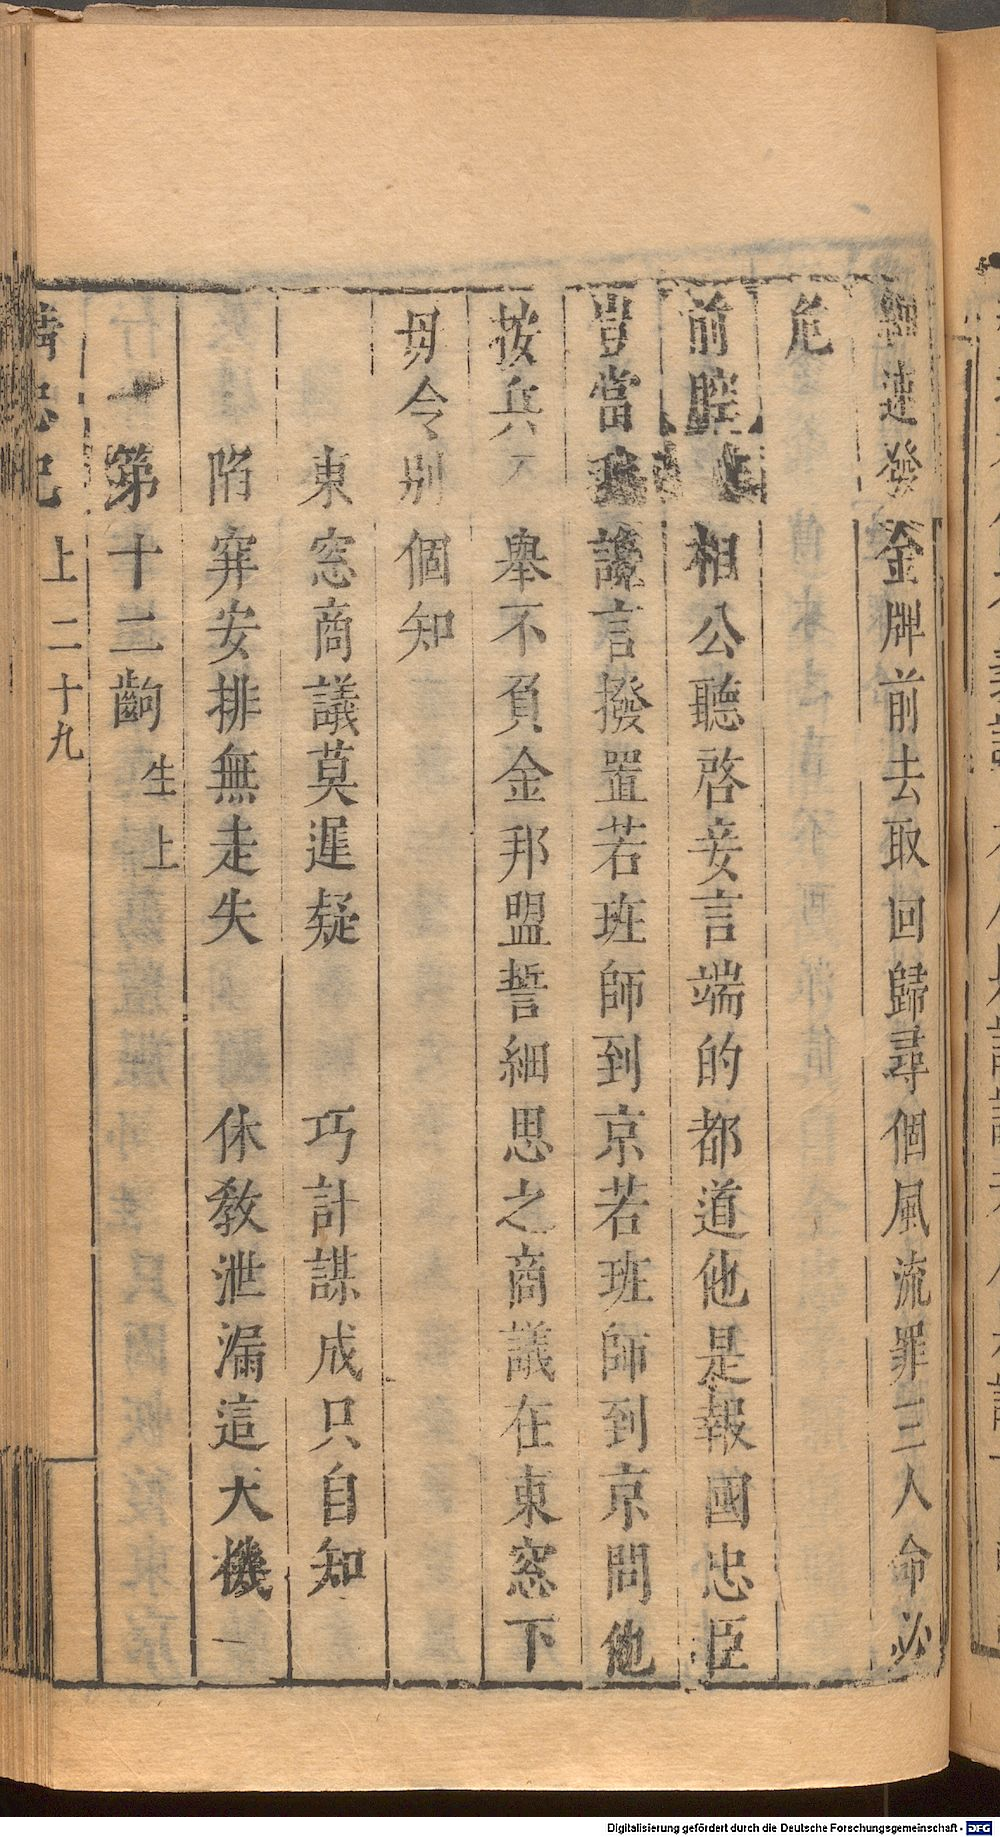 連發金牌前去取回歸尋個風流罪三人命必
危
前腔 相公聽啓妾言端的都道他是報國忠臣
豈當 讒言撥置若班師到京若班師到京問他
按兵不舉不負金邦盟誓細思之商議在東窓下
毋令别個知
東窓商議莫遲疑 巧計謀成只自知
陷穽安排無走失 休教泄漏這大機
第十二齣 生上
忠記 上二十九
Digitalisierung gefördert durch die Deutsche Forschungsgemeinschaft - DFG